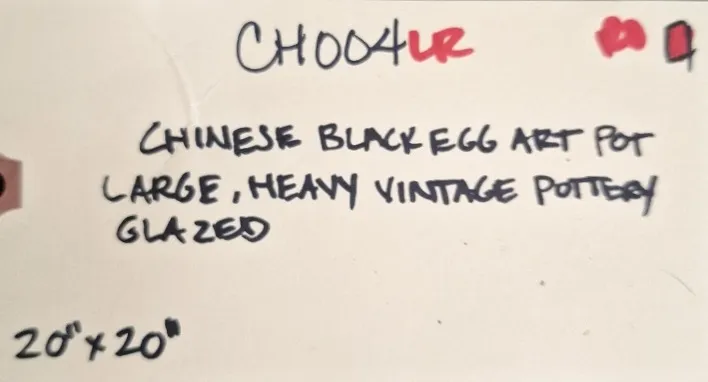 CH004LR
CHINESE BLACK EGG ART POT
LARGE, HEAVY VINTAGE POTTERY
GLAZED
20" x 20"